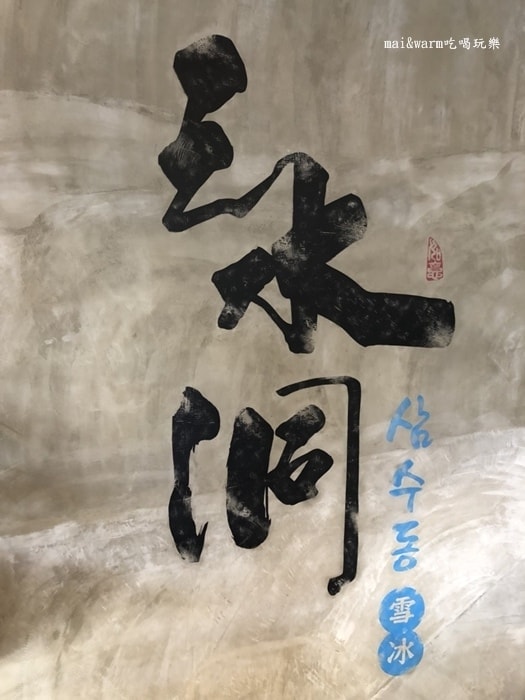 mai&warm吃喝玩樂
三水洞
삼수동
雪冰